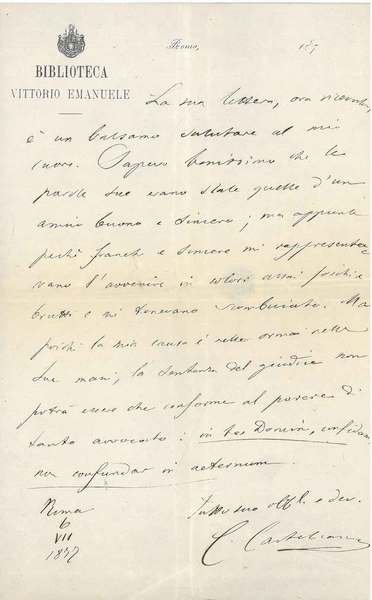 BIBLIOTECA
VITTORIO EMANUELE
Roma, 187
La sua lettera, ora ricevuta,
è un balsamo salutare al mio
cuore. Sapevo benissimo che le
parole sue erano state quelle d'un
amico buono e sincero; ma appunto
perchè franche e sincere mi rappresenta-
vano l'avvenire in colori assai foschi e
brutti e mi tenevano. Ma
poichè la mia causa è ormai nelle
sue mani, la sentenza del giudice non
potrà esser che conforme al parere di
tanto avvocato: in te Domin, confidam
non confundar in aeternum.
Roma
6
VII
1877
Tutto suo obbl. e dev.
C. Castellani